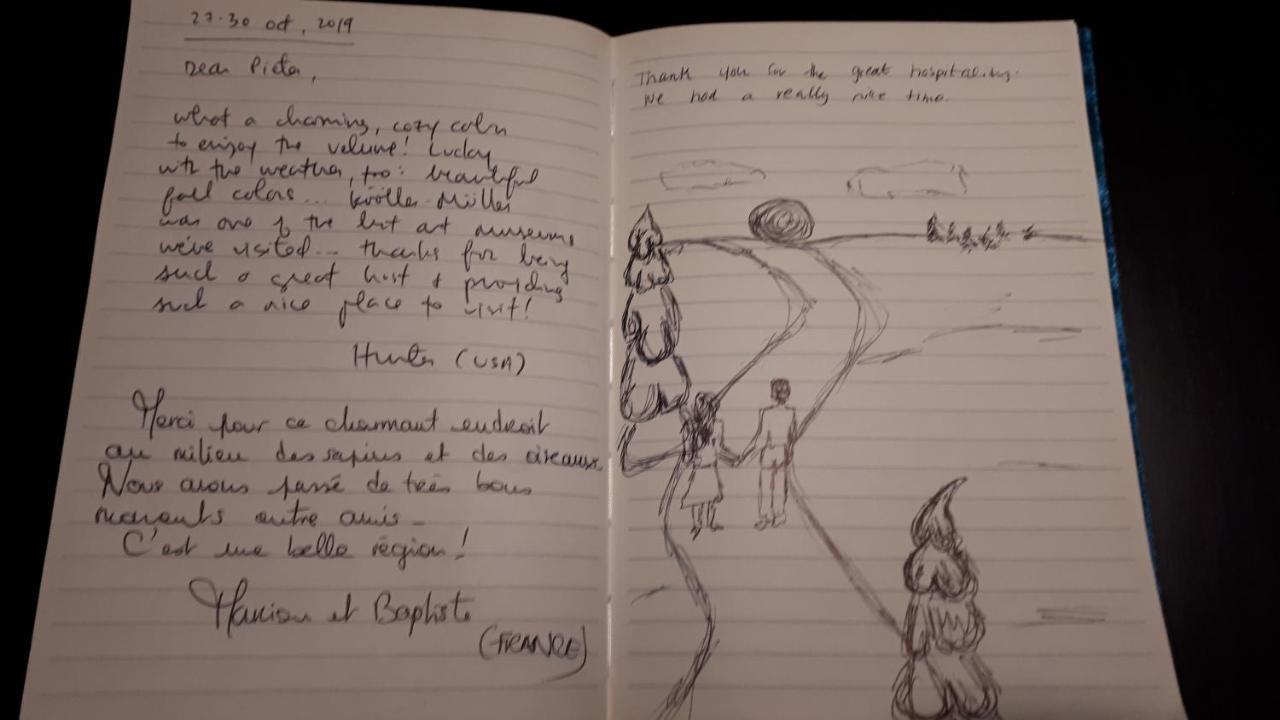 27-30 oct, 2019
Dear Pieter,
what a charming, cozy cabin
to enjoy the veluwe! Lucky
with the weather, too: beautiful
fall colors... Kröller-Müller
was one of the best art museums
we've visited... thanks for being
such a great host & providing
such a nice place to visit!
Hunter (USA)
Merci pour ce charmant endroit
au milieu des sapins et des oiseaux.
Nous avons passé de très bons
moments entre amis -
C'est une belle région!
Marion et Baptiste
(FRANCE)
Thank you for the great hospitality.
We had a really nice time.